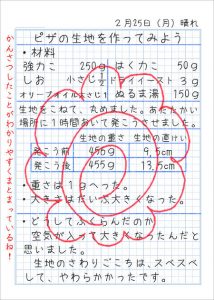 2月25日(月)晴れ
ピザの生地を作ってみよう
・材料
強力こ 250g はく力こ 50g
しお 小さじ1/2 ドライイースト 3g
オリーブオイル大さじ1 ぬるま湯 150g
生地をこねて、丸めました。あたたかい
場所に1時間おいて発こうさせました。
生地の重さ 生地の直けい
発こう前 456g 9,5cm
発こう後 455g 13,5cm
・重さは1gへった。
・大きさはだいぶ大きくなった。
・どうしてふくらんだのか
空気が入って大きくなったんだと
思いました。
生地のさわりごこちは、スベスベ
して、やわらかかったです。
かんさつしたことがわかりやすくまとまっているね!